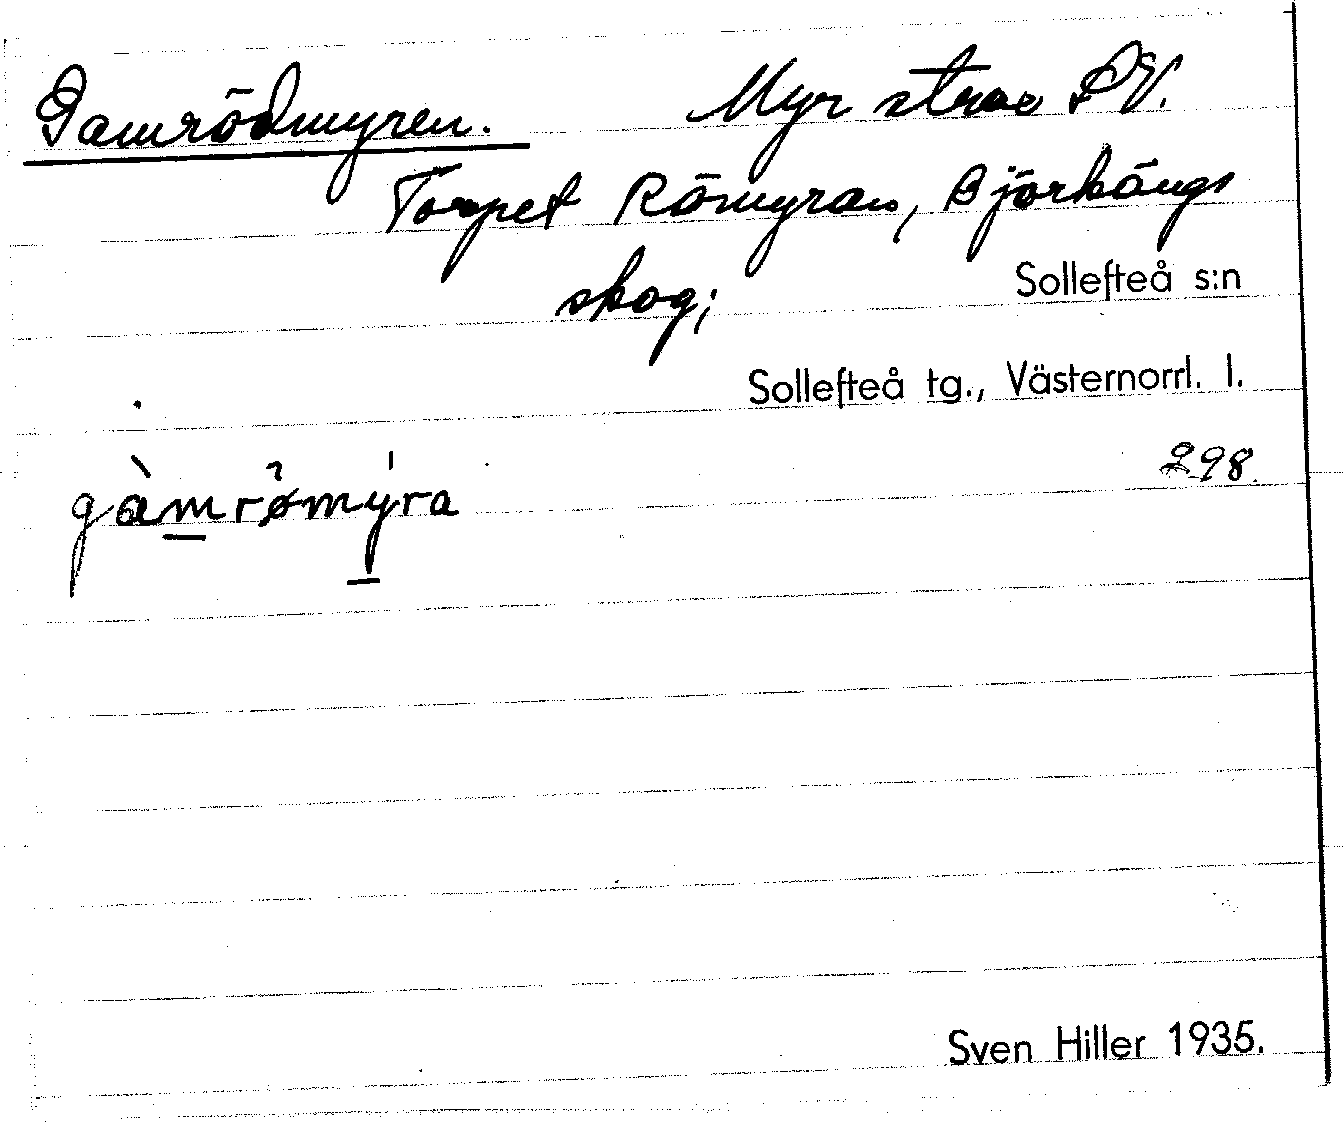 Gamrödmyren. Myr strax SV.
Torpet Römyran, Björkängs
skog;
Sollefteå s:n
Sollefteå tg., Västernorrl. l.
298.
gàmrømýra
Sven Hiller 1935.